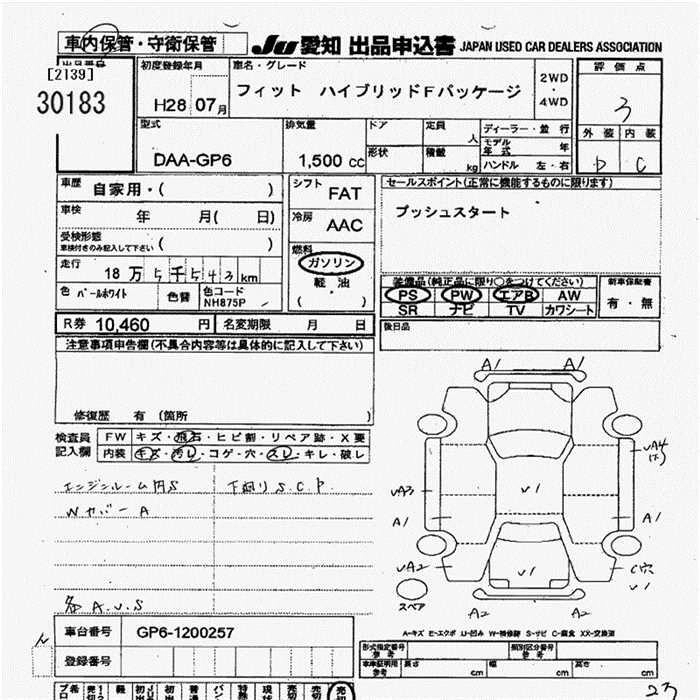 車内保管・守衛保管
JU 愛知 出品申込書 JAPAN USED CAR DEALERS ASSOCIATION
出品番号
[2139]
30183
初度登録年月
H28 07月
車名・グレード
フィット ハイブリッドFパッケージ
2WD
・
4WD
評価点
3
外装 内装
D C
型式
DAA-GP6
排気量
1,500 cc
ドア
形状
定員 人
積載 kg
ディーラー・並行
モデル年式 年
ハンドル 左・右
車歴 自家用・( )
車検 年 月( 日)
受検形態
車検付きのみ記入して下さい ( )
走行 18万5千543km
色 パールホワイト
色替
色コード
NH875P
シフト FAT
冷房 AAC
燃料
ガソリン
軽油
( )
セールスポイント(正常に機能するものに限ります)
プッシュスタート
装備品(純正品に限り○をつけてください)
PS PW エアB AW
SR ナビ TV カワシート
新車保証書
有・無
後日品
R券 10,460 円
名変期限 月 日
注意事項申告欄(不具合内容等は具体的に記入して下さい)
修復歴 有 (箇所 )
検査員
記入欄
FW キズ・飛石・ヒビ割・リペア跡・X要
内装 キズ・汚レ・コゲ・穴・スレ・キレ・破レ
エンジンルーム内S 下回りS.C.P
Wカバー A
各 A.U.S
A1 A1
UA4
UA3
U1
A1 A1
UA2
U1
C穴
U1
スペア
A2 A2
A-キズ E-エクボ U-凹み W-補修跡 S-サビ C-腐食 XX-交換済
車台番号 GP6-1200257
登録番号
型式指定番号
参考
類別区分番号
参考
車庫証明用
参考
長さ cm
幅 cm
高さ cm
23